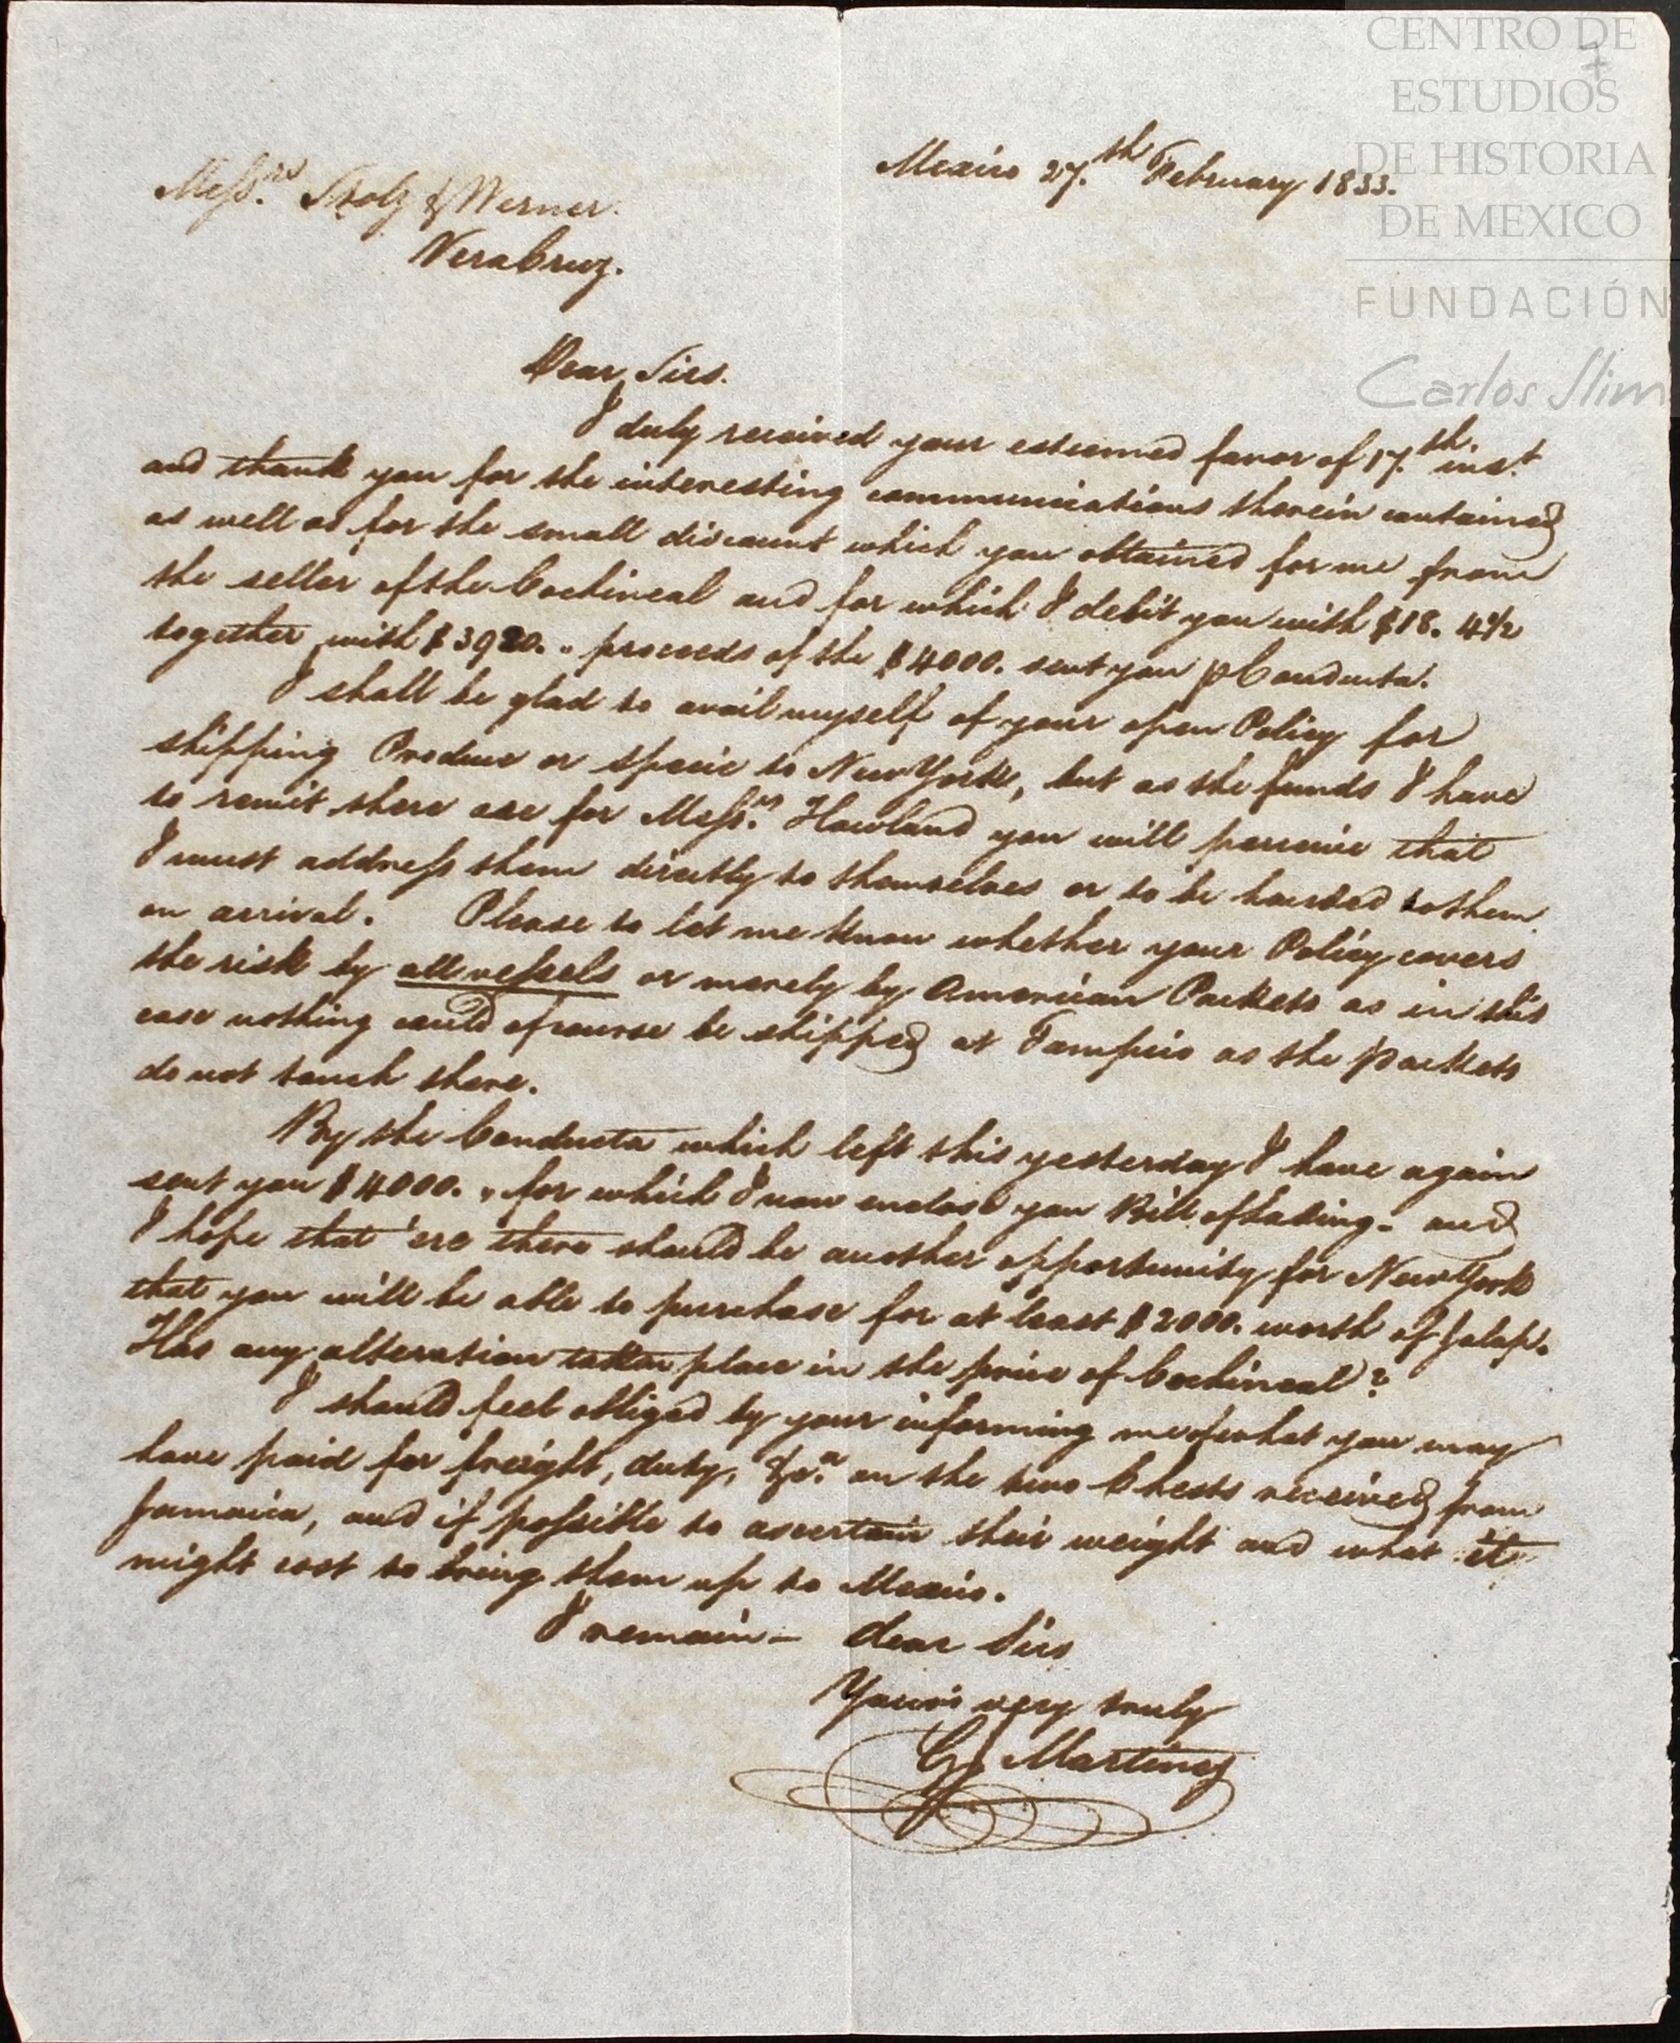 CENTRO DE
ESTUDIOS
DE HISTORIA
DE MEXICO
FUNDACIÓN
Carlos Slim
7
Mexico 27.th February 1833.
Messrs. Stolz & Werner.
VeraCruz.
Dear Sirs.
I duly received your esteemed favor of 17.th inst.
and thank you for the interesting communications therein contained
as well as for the small discount which you obtained for me from
the seller of the Cochineal and for which I debit you with $18. 4½
together with $3920. " proceeds of the $4000. sent you p Conducta.
I shall be glad to avail myself of your open Policy for
shipping Produce or specie to New York, but as the funds I have
to remit there are for Messrs. Howland you will perceive that
I must address them directly to themselves or to be handed to them
on arrival. Please to let me know whether your Policy covers
the risk by all vessels or merely by American Packets as in this
case nothing could of course be shipped at Tampico as the packets
do not touch there.
By the Conducta which left this yesterday I have again
sent you $4000. " for which I now enclose you Bill of Lading - and
I hope that 'ere there should be another opportunity for New York
that you will be able to purchase for at least $2000. worth of Jalap.
Has any alteration taken place in the price of Cochineal?
I should feel obliged by your informing me of what you may
have paid for freight, duty, &ca. on the two Chests received from
Jamaica, and if possible to ascertain their weight and what it
might cost to bring them up to Mexico.
I remain - dear Sirs
Yours very truly
Martinez